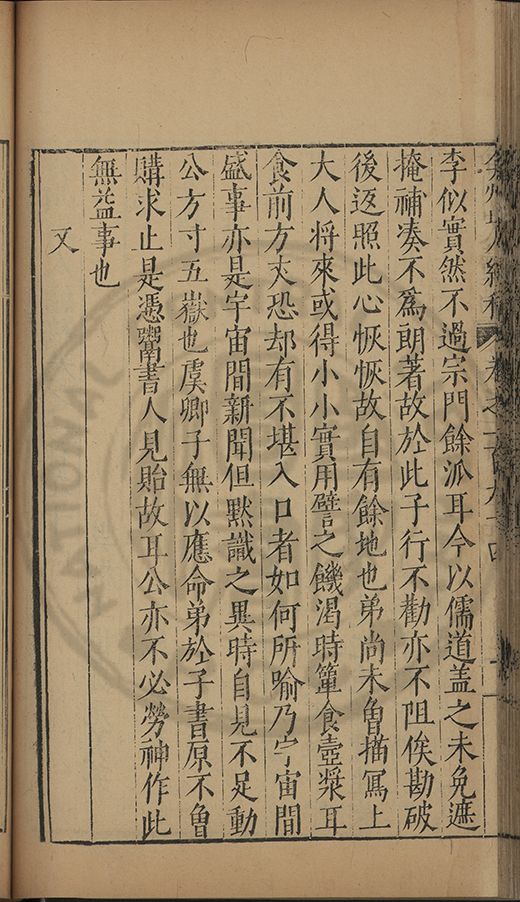 弇州山人續稿 卷之一百九十四
李似實然不過宗門餘派耳今以儒道盖之未免遮
掩補凑不爲朗著故於此子行不勸亦不阻俟勘破
後返照此心恢恢故自有餘地也弟尚未魯描冩上
大人將來或得小小實用譬之饑渴時簞食壺漿耳
食前方丈恐却有不堪入口者如何所喻乃宇宙間
盛事亦是宇宙間新聞但默識之異時自見不足動
公方寸五嶽也虞卿子無以應命弟於子書原不魯
購求止是憑鬻書人見貽故耳公亦不必勞神作此
無益事也
又